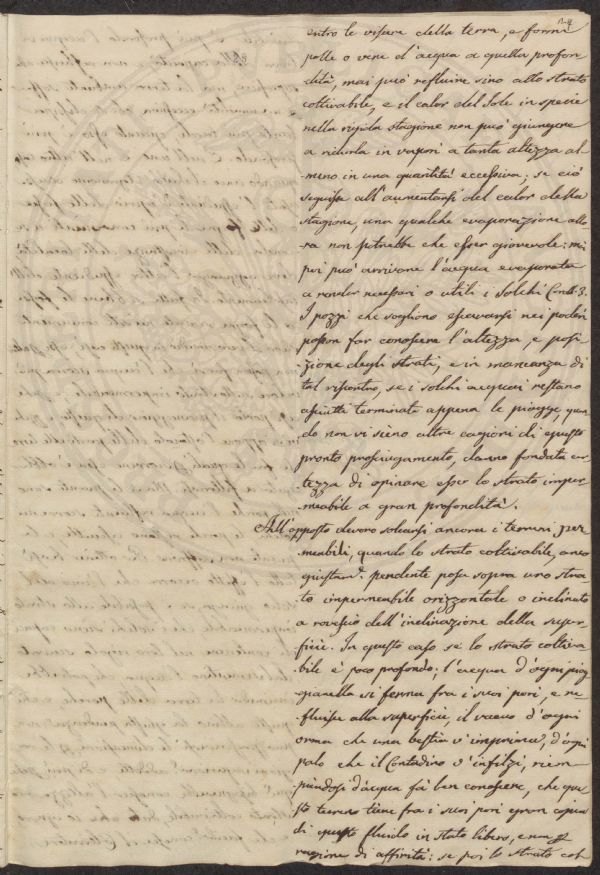 entro le viscere della terra, e formi
polle o vene d'acqua a quella profon
dità, mai può refluire sino allo strato
coltivabile, e il calor del Sole in specie
nella rigida stagione non può giungere
a ridurla in vapori a tanta altezza al
meno in una quantità eccessiva; se ciò
seguisse all'aumentarsi del calor della
stagione, una qualche evaporazione allo
ra non potrebbe che esser giovevole: nè
poi può arrivare l'acqua evaporata
a render necessari o utili i Solchi
I pozzi che sogliono escavarsi nei poderi
posson far conoscere l'altezza, e posi
zione degli strati, e in mancanza di
tal riscontro, se i solchi acquai restano
asciutti terminate appena le piogge, quan
do non vi sieno altre cagioni di questo
pronto prosciugamento, danno fondata cer
tezza di opinare esser lo strato imper
meabile a gran profondità.
All'opposto devono solcarsi ancora i terreni per
meabili, quando lo strato coltivabile, anco
giustam.e pendente posa sopra uno stra
to impermeabile orizzontale o inclinato
a rovescio dell'inclinazione della super
ficie. In questo caso se lo strato coltiva
bile è poco profondo: l'acqua d'ogni piog
giarella si ferma fra i suoi pori, e re
fluisce alla superficie, il vacuo d'ogni
orma che una bestia v'imprima, d'ogni
palo che il Contadino v'infilzi, riem
piendosi d'acqua fà ben conoscere, che que
sto terreno tiene fra i suoi pori gran copia
di questo fluido in stato libero, e non p
ragione di affinità: se poi lo strato col